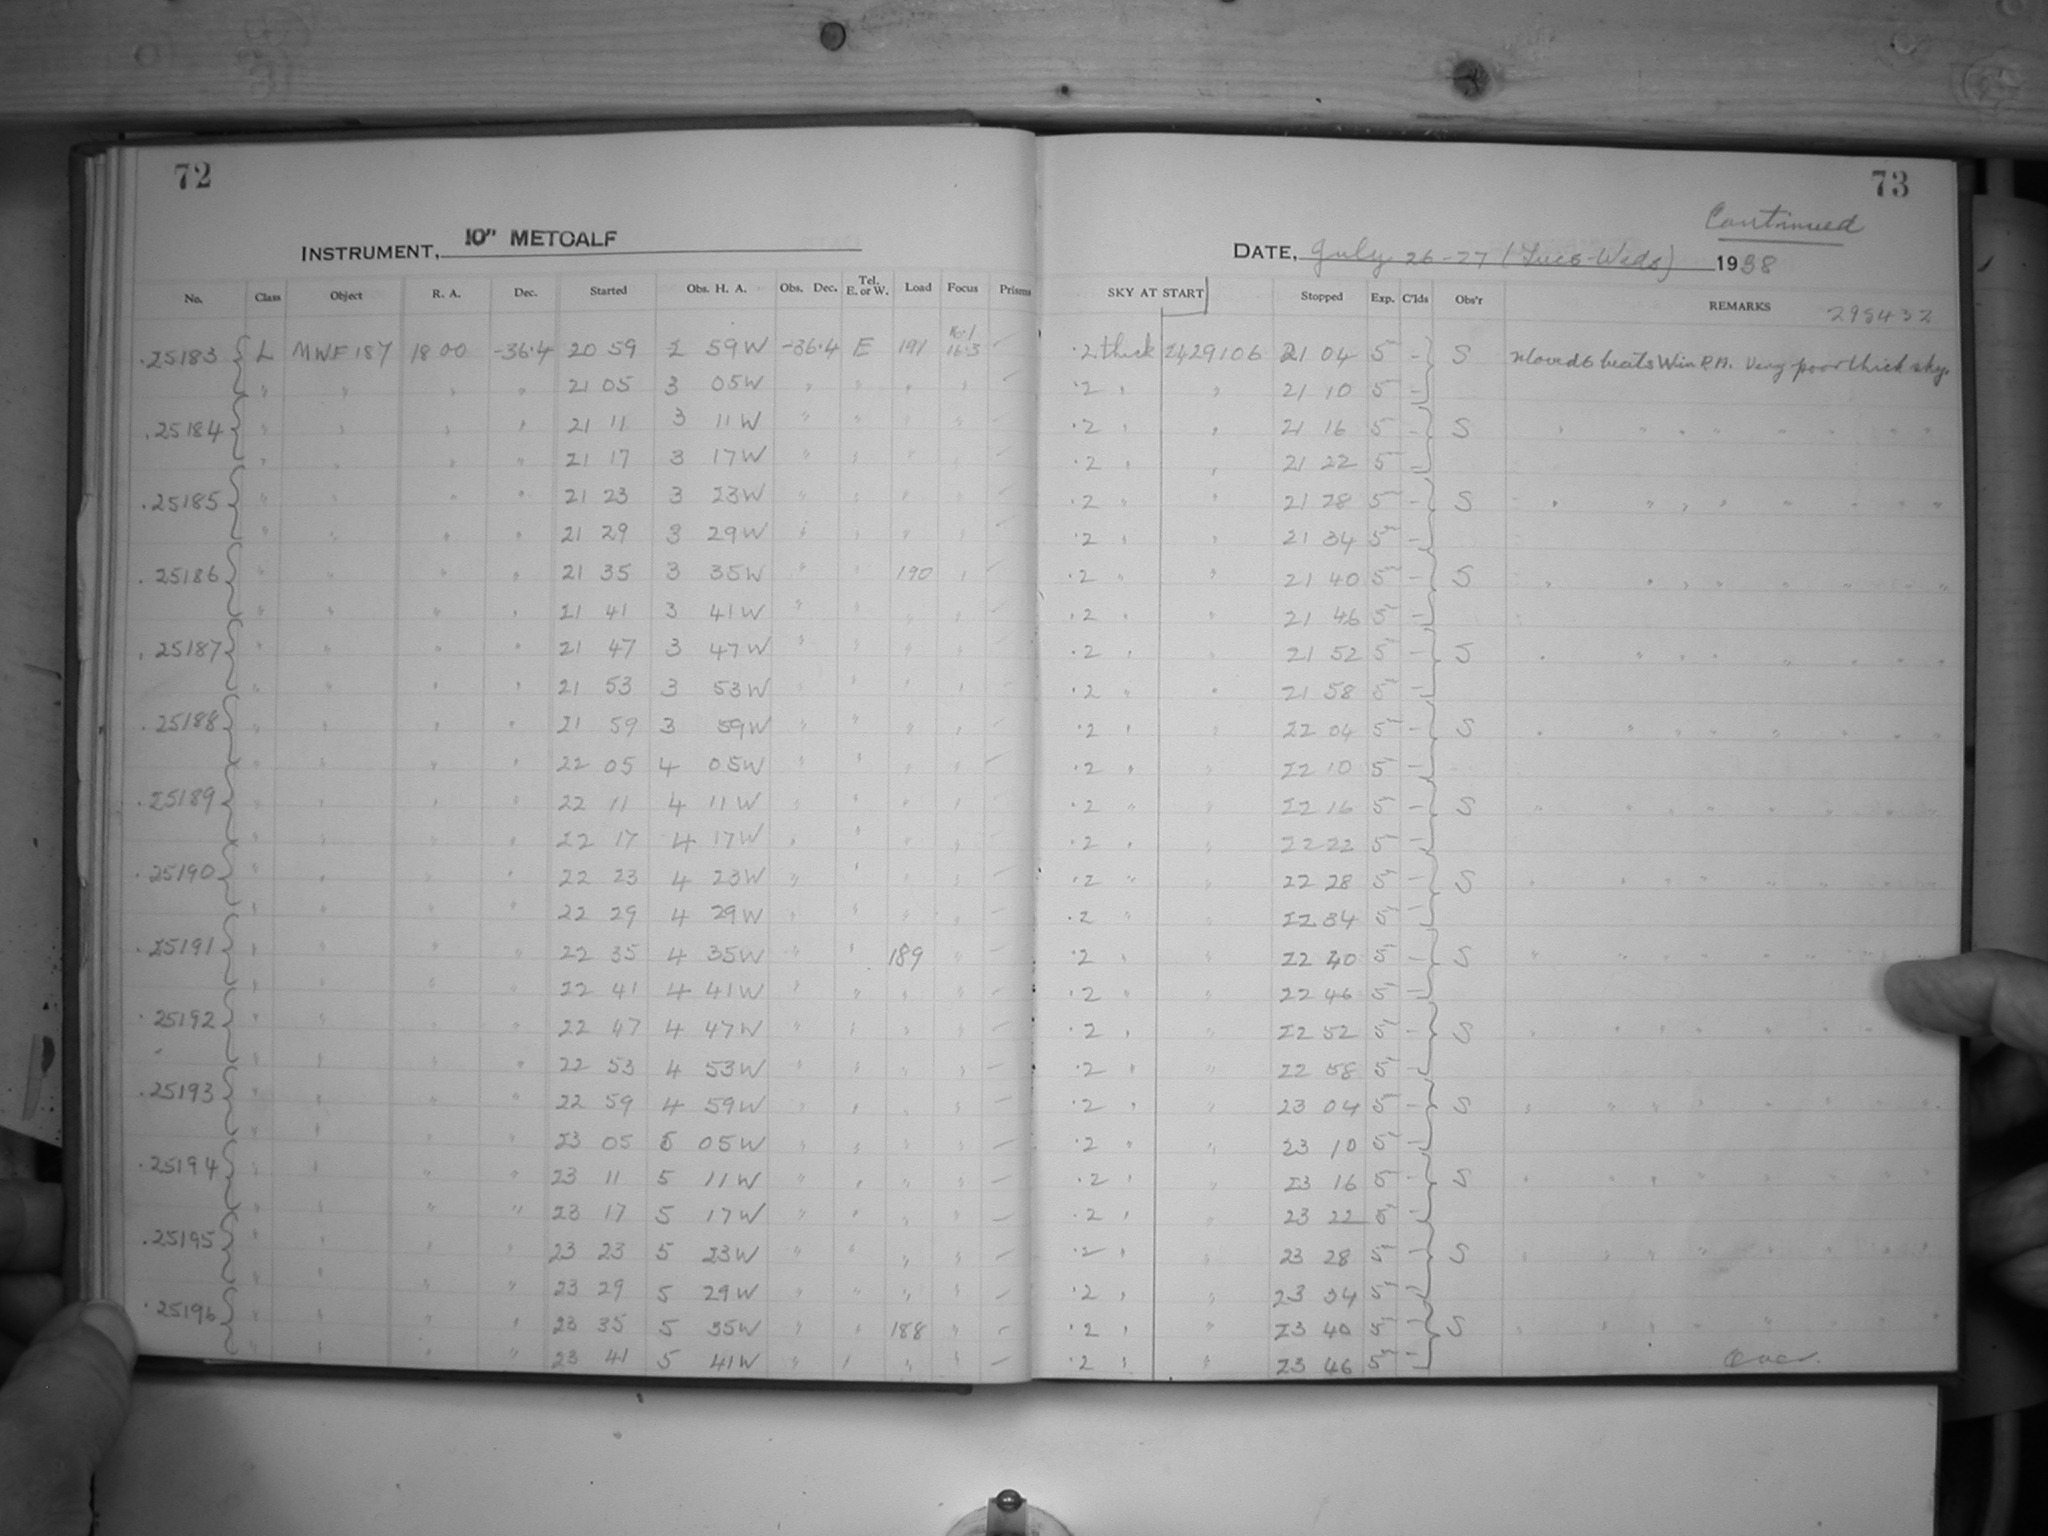 72
INSTRUMENT, 10" METCALF
No. Class Object R. A. Dec. Started Obs. H. A. Obs. Dec. Tel. E. or W. Load Focus Prisms
.25183 L MWF 187 18 00 -36.4 20 59 2 59W -36.4 E 191 16.1 16.3
" " " " 21 05 3 05W " " " "
.25184 " " " " 21 11 3 11W " " " "
" " " " 21 17 3 17W " " " "
.25185 " " " " 21 23 3 23W " " " "
" " " " 21 29 3 29W " " " "
.25186 " " " " 21 35 3 35W " " 190 "
" " " " 21 41 3 41W " " " "
.25187 " " " " 21 47 3 47W " " " "
" " " " 21 53 3 53W " " " "
.25188 " " " " 21 59 3 59W " " " "
" " " " 22 05 4 05W " " " "
.25189 " " " " 22 11 4 11W " " " "
" " " " 22 17 4 17W " " " "
.25190 " " " " 22 23 4 23W " " " "
" " " " 22 29 4 29W " " " "
.25191 " " " " 22 35 4 35W " " 189 "
" " " " 22 41 4 41W " " " "
.25192 " " " " 22 47 4 47W " " " "
" " " " 22 53 4 53W " " " "
.25193 " " " " 22 59 4 59W " " " "
" " " " 23 05 5 05W " " " "
.25194 " " " " 23 11 5 11W " " " "
" " " " 23 17 5 17W " " " "
.25195 " " " " 23 23 5 23W " " " "
" " " " 23 29 5 29W " " " "
.25196 " " " " 23 35 5 35W " " 188 "
" " " " 23 41 5 41W " " " "
73
Continued
DATE, July 26-27 (Tues-Weds) 1938
SKY AT START Stopped Exp. C'lds Obs'r REMARKS 298432
.2 thick 2429106 21 04 5 - S Moved 6 beats W in R.A. Very poor thick sky.
.2 " " 21 10 5 -
.2 " " 21 16 5 - S " " " " " " " "
.2 " " 21 22 5 -
.2 " " 21 28 5 - S " " " " " " " "
.2 " " 21 34 5 -
.2 " " 21 40 5 - S " " " " " " " "
.2 " " 21 46 5 -
.2 " " 21 52 5 - S " " " " " " " "
.2 " " 21 58 5 -
.2 " " 22 04 5 - S " " " " " " " "
.2 " " 22 10 5 -
.2 " " 22 16 5 - S " " " " " " " "
.2 " " 22 22 5 -
.2 " " 22 28 5 - S " " " " " " " "
.2 " " 22 34 5 -
.2 " " 22 40 5 - S " " " " " " " "
.2 " " 22 46 5 -
.2 " " 22 52 5 - S " " " " " " " "
.2 " " 22 58 5 -
.2 " " 23 04 5 - S " " " " " " " "
.2 " " 23 10 5 -
.2 " " 23 16 5 - S " " " " " " " "
.2 " " 23 22 5 -
.2 " " 23 28 5 - S " " " " " " " "
.2 " " 23 34 5 -
.2 " " 23 40 5 - S " " " " " " " "
.2 " " 23 46 5 -
Over.